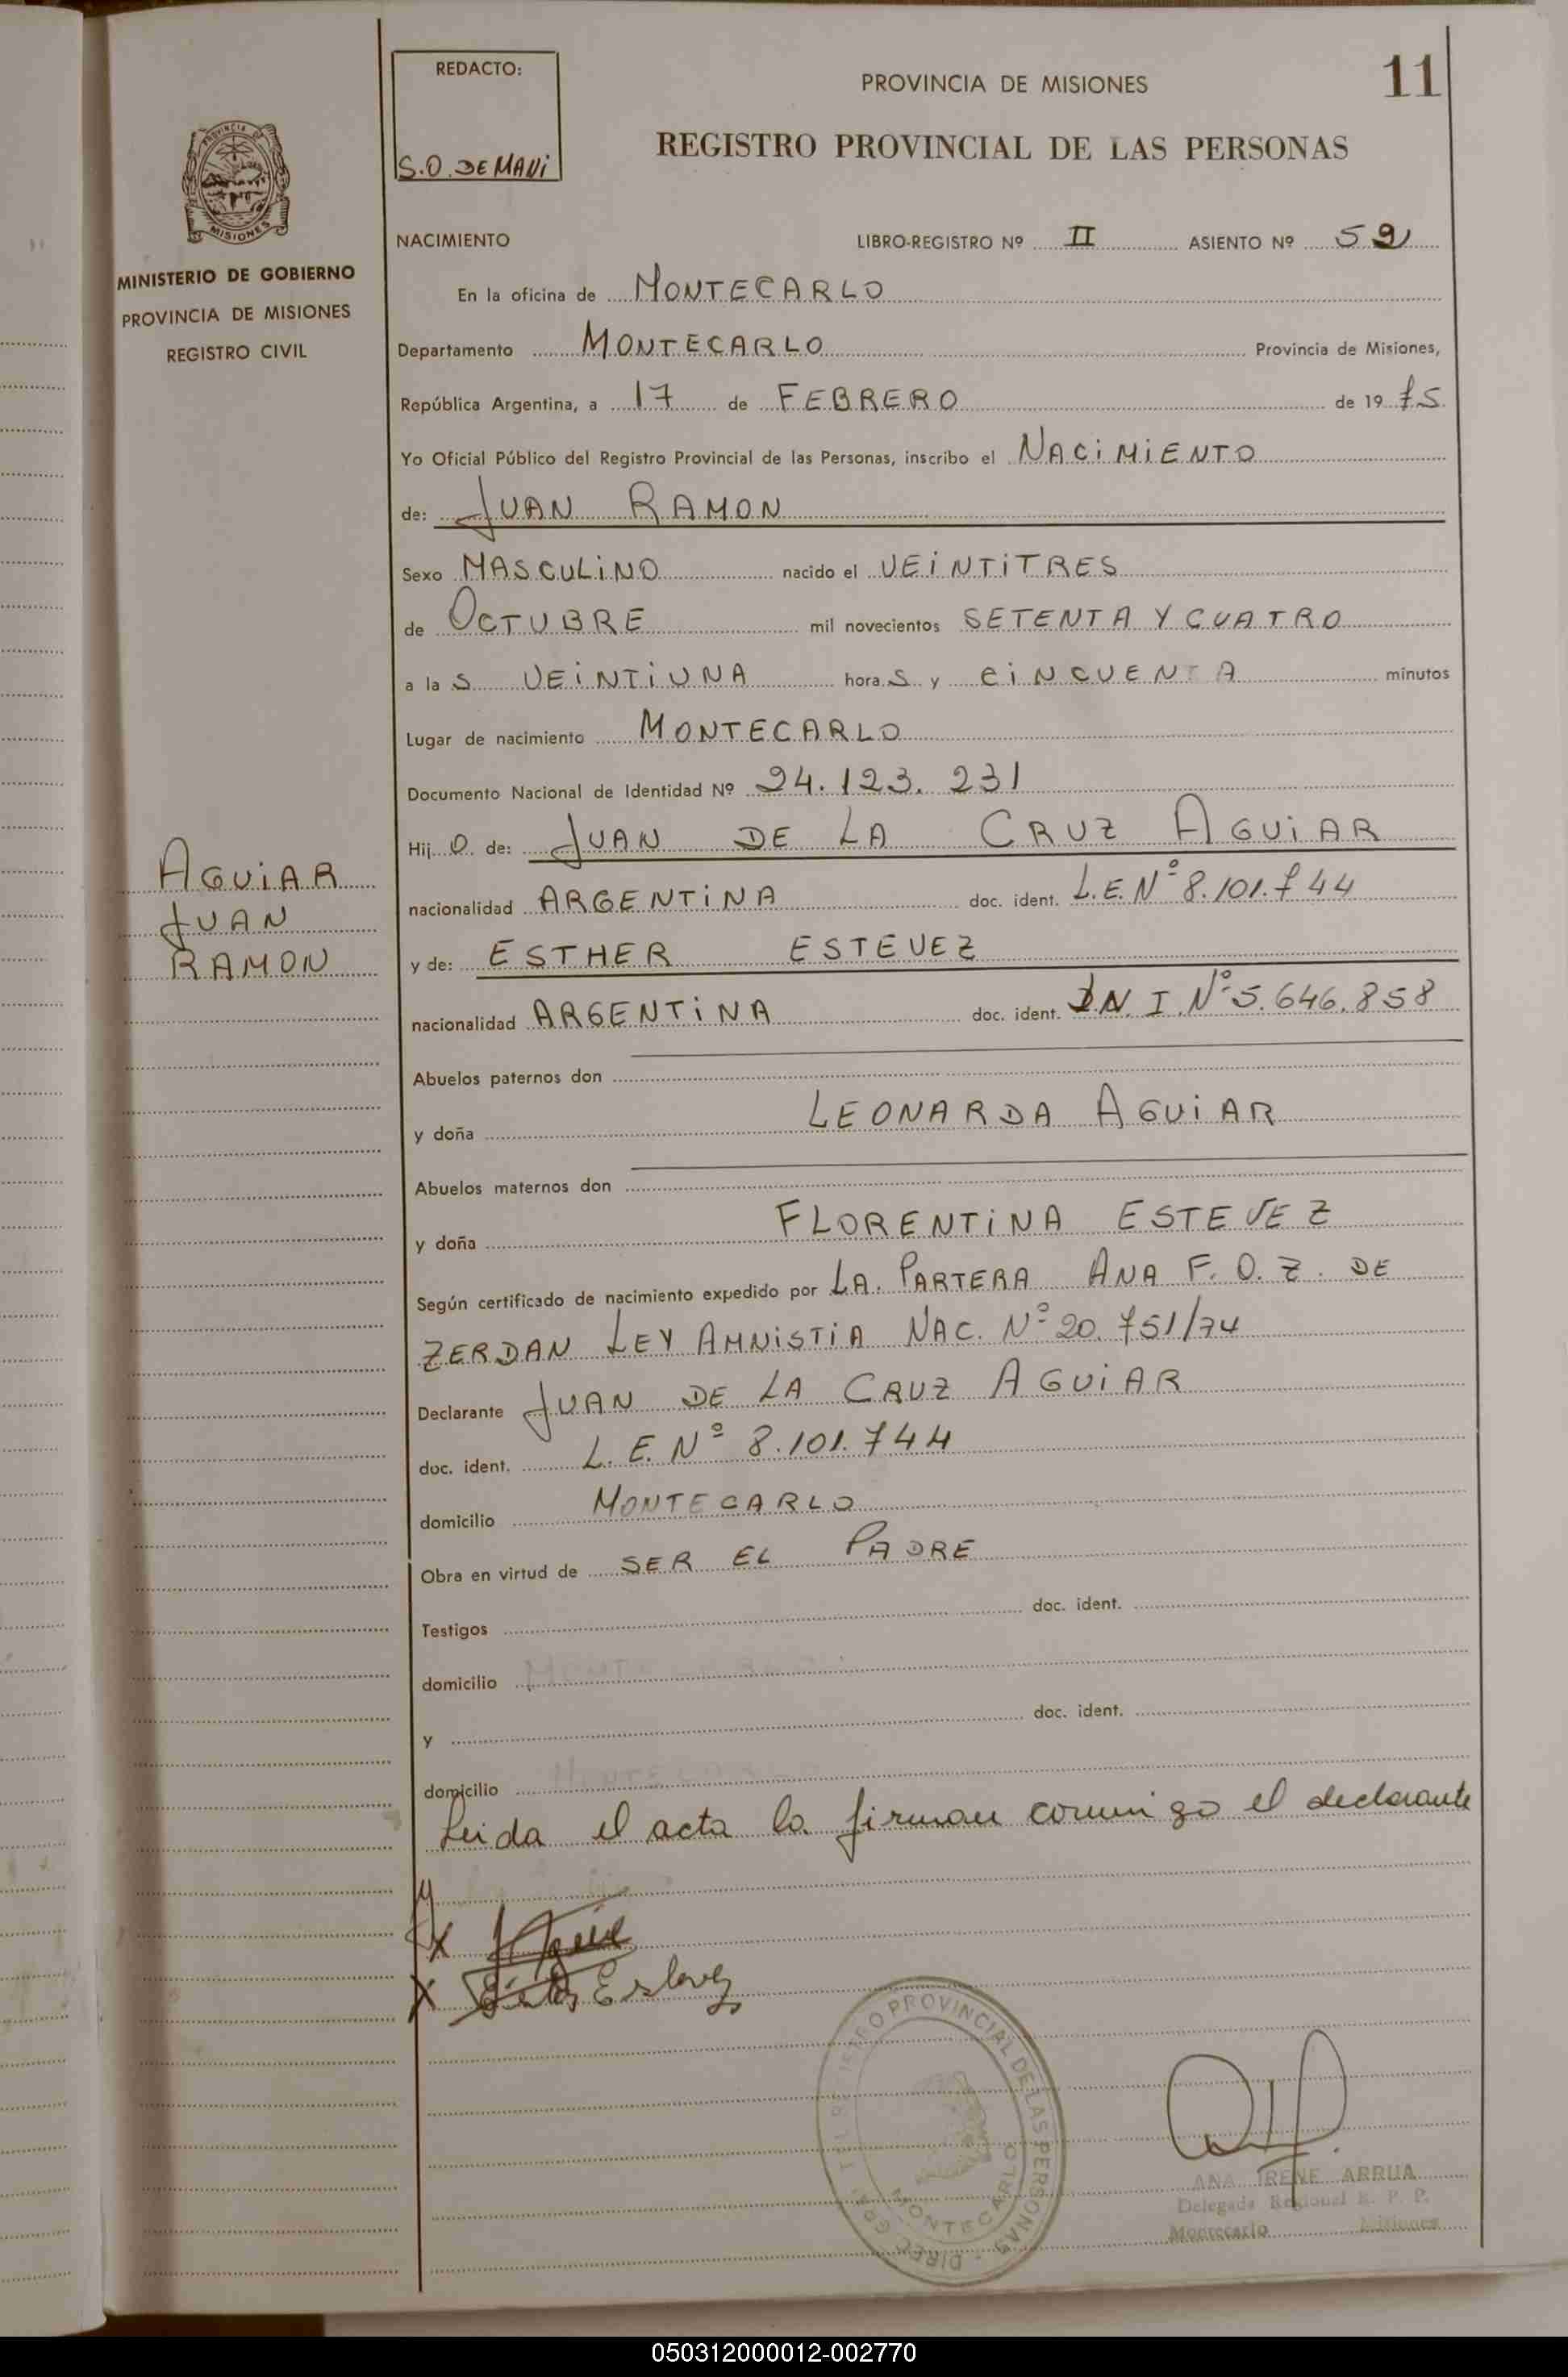 REDACTO:
S.O. DEMAVi
PROVINCIA DE MISIONES
11
REGISTRO PROVINCIAL DE LAS PERSONAS
PROVINCIA DE
MISIONES
MINISTERIO DE GOBIERNO
PROVINCIA DE MISIONES
REGISTRO CIVIL
NACIMIENTO LIBRO-REGISTRO Nº II ASIENTO Nº 59
En la oficina de MONTECARLO
Departamento MONTECARLO Provincia de Misiones,
República Argentina, a 17 de FEBRERO de 1975
Yo Oficial Público del Registro Provincial de las Personas, inscribo el NACiMiENTO
de: JUAN RAMON
Sexo MASCULiNO nacido el VEiNTiTRES
de OCTUBRE mil novecientos SETENTA Y CUATRO
a la S VEiNTiUNA hora S y CiNCUENTA minutos
Lugar de nacimiento MONTECARLO
Documento Nacional de Identidad Nº 24.123.231
Hij O de: JUAN DE LA CRUZ AGUiAR
nacionalidad ARGENTiNA doc. ident. L.E.Nº 8.101.744
y de: ESTHER ESTEVEZ
nacionalidad ARGENTiNA doc. ident. D.N.I.Nº 5.646.858
Abuelos paternos don
y doña LEONARDA AGUiAR
Abuelos maternos don
y doña FLORENTiNA ESTEVEZ
Según certificado de nacimiento expedido por LA PARTERA ANA F. O. Z. DE
ZERDAN LEY AMNiSTiA NAC. Nº 20.751/74
Declarante JUAN DE LA CRUZ AGUiAR
doc. ident. L.E. Nº 8.101.744
domicilio MONTECARLO
Obra en virtud de SER EL PADRE
Testigos doc. ident.
domicilio
y doc. ident.
domicilio MONTECARLO
Leida el acta la firman conmigo el declarante
AGUiAR
JUAN
RAMON
X
X Estevez
PROVINCIAL DE LAS PERSONAS
MONTECARLO
ANA IRENE ARRUA
Delegada Regional R. P. P.
Montecarlo Misiones
050312000012-002770